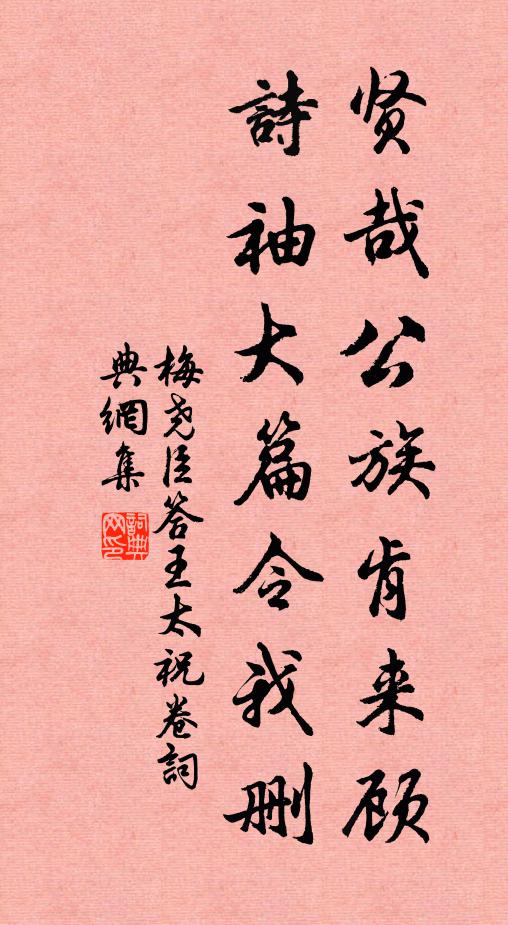 贤哉公族肯来顾
詩袖大篇令我删
梅尧臣答王太祝卷詞
典網集
詞典
网印